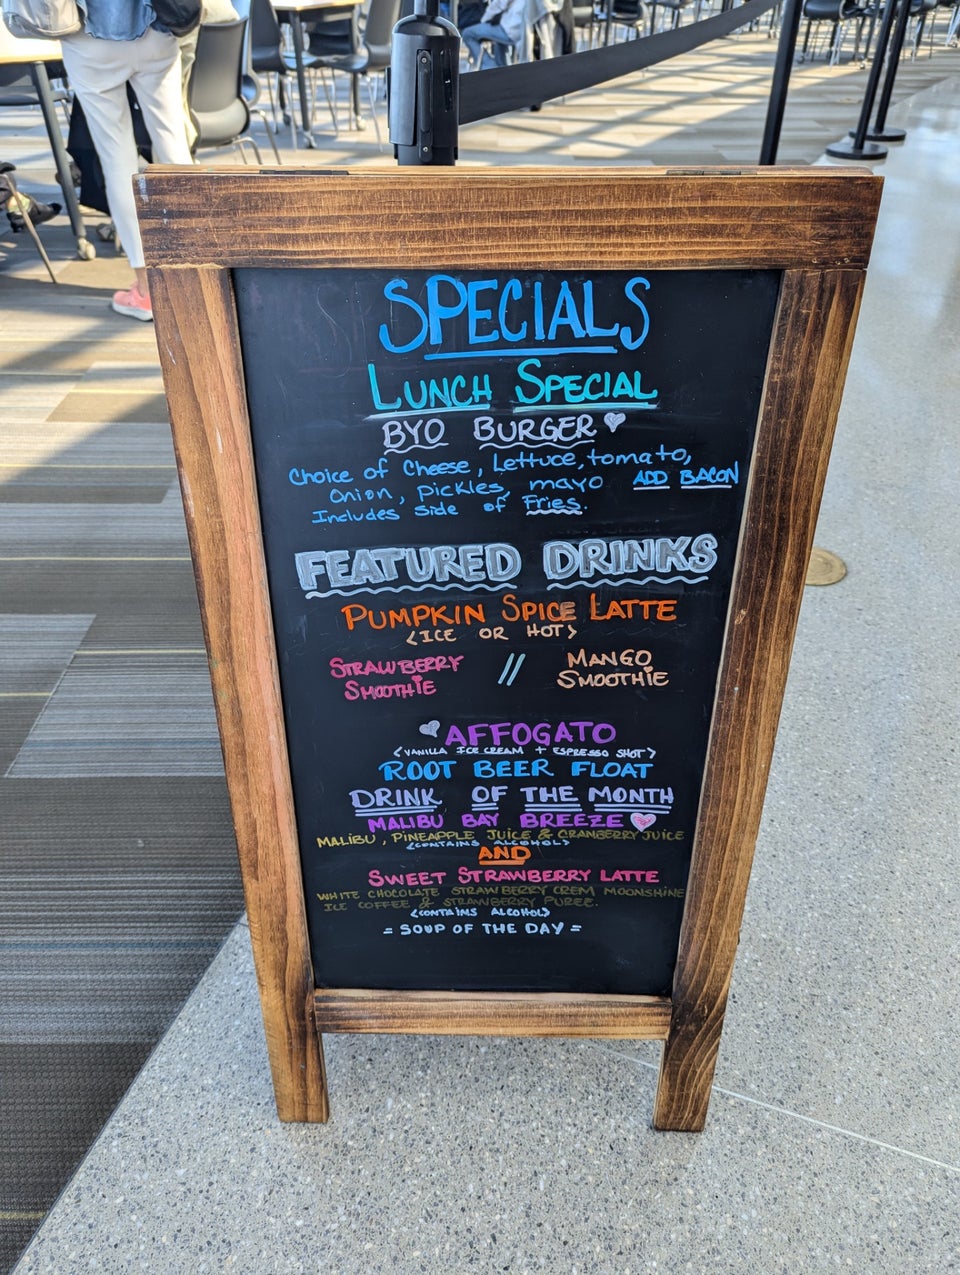 SPECIALS
LUNCH SPECIAL
BYO BURGER
Choice of Cheese, Lettuce, tomato,
Onion, pickles, mayo ADD BACON
Includes side of Fries.
FEATURED DRINKS
PUMPKIN SPICE LATTE
<ICE OR HOT>
STRAWBERRY SMOOTHIE // MANGO SMOOTHIE
AFFOGATO
<VANILLA ICE CREAM + ESPRESSO SHOT>
ROOT BEER FLOAT
DRINK OF THE MONTH
MALIBU BAY BREEZE
MALIBU, PINEAPPLE JUICE & CRANBERRY JUICE
<CONTAINS ALCOHOL>
AND
SWEET STRAWBERRY LATTE
WHITE CHOCOLATE STRAWBERRY CREM MOONSHINE
ICE COFFEE & STRAWBERRY PUREE.
<CONTAINS ALCOHOL>
= SOUP OF THE DAY =